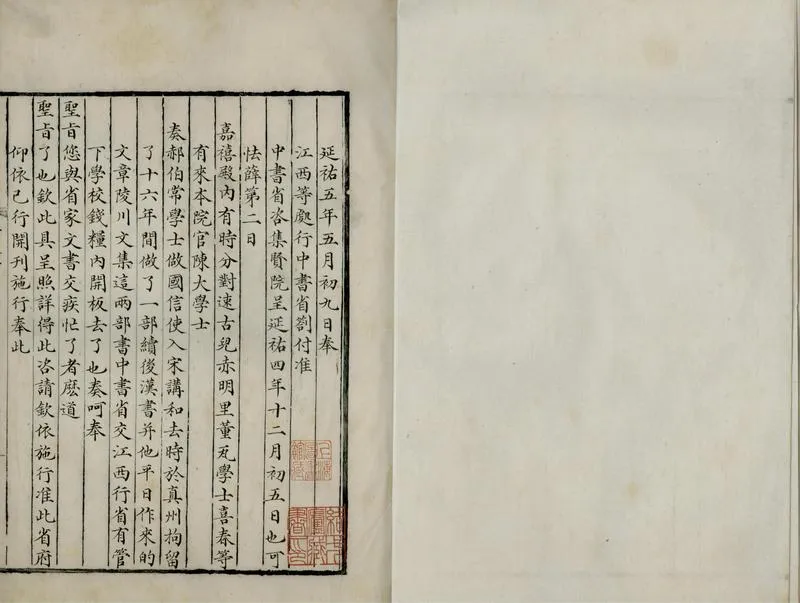 延祐五年五月初九日奉
江西等處行中書省劄付准
中書省咨集賢院呈延祐四年十二月初五日也可
怯薛第二日
嘉禧殿內有時分對速古兒赤明里董瓦學士喜春等
有來本院官陳大學士
奏郝伯常學士做國信使入宋講和去時於真州拘留
了十六年間做了一部續後漢書并他平日作來的
文章陵川文集這兩部書中書省交江西行省有管
下學校錢糧內開板去了也奏呵奉
聖旨您與省家文書交疾忙了者麽道
聖旨了也欽此具呈照詳得此咨請欽依施行准此省府
仰依已行開刊施行奉此